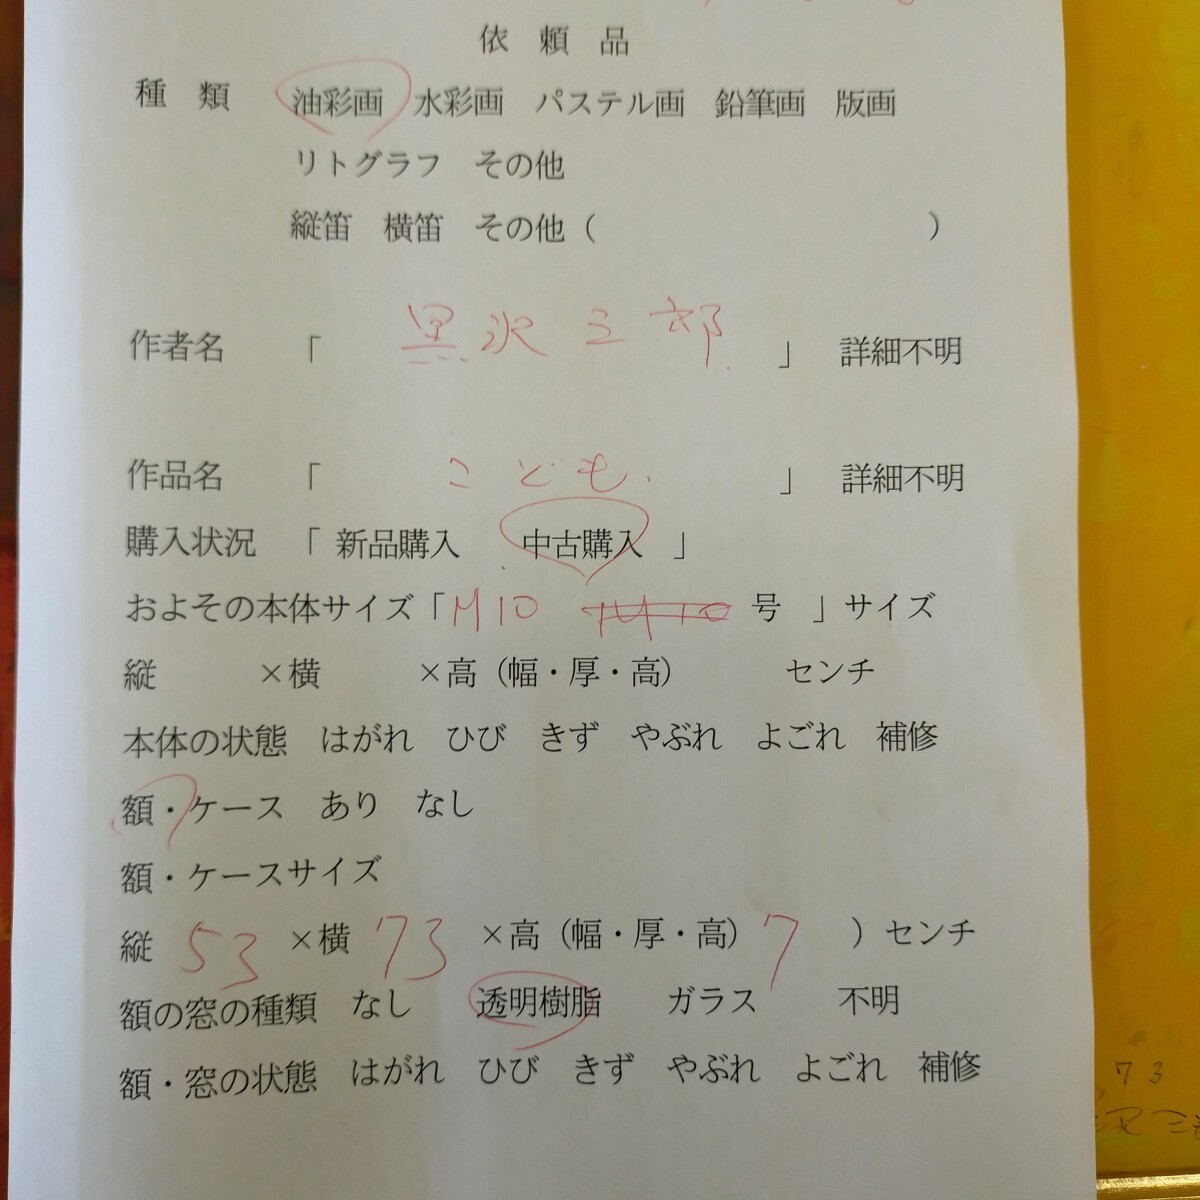 依頼品
種類 油彩画 水彩画 パステル画 鉛筆画 版画
リトグラフ その他
縦笛 横笛 その他（ ）
作者名 「 黒沢三郎 」 詳細不明
作品名 「 こども. 」 詳細不明
購入状況 「 新品購入 中古購入 」
およその本体サイズ「M10 号 」サイズ
縦 ×横 ×高（幅・厚・高） センチ
本体の状態 はがれ ひび きず やぶれ よごれ 補修
額・ケース あり なし
額・ケースサイズ
縦 53 ×横 73 ×高（幅・厚・高） 7 ）センチ
額の窓の種類 なし 透明樹脂 ガラス 不明
額・窓の状態 はがれ ひび きず やぶれ よごれ 補修
73